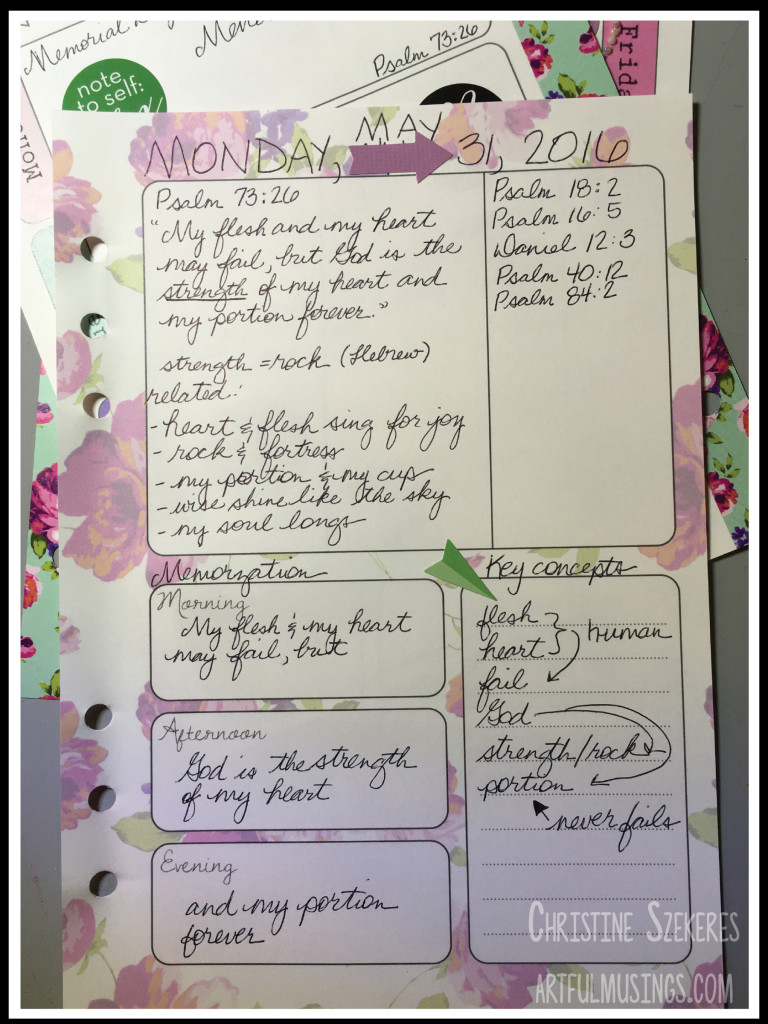 Memorial
Psalm 73:26
Frida
note
to self:
MAY
MONDAY, 31, 2016
Psalm 73:26
"My flesh and my heart
may fail, but God is the
strength of my heart and
my portion forever."
strength = rock (Hebrew)
related:
- heart & flesh sing for joy
- rock & fortress
- my portion & my cup
- wise shine like the sky
- my soul longs
Psalm 18:2
Psalm 16:5
Daniel 12:3
Psalm 40:12
Psalm 84:2
Memorzation
Morning
My flesh & my heart
may fail, but
Afternoon
God is the strength
of my heart
Evening
and my portion
forever
Key concepts
flesh
heart
human
fail
God
strength/rock
portion
never fails
CHRISTINE SZEKERES
ARTFULMUSINGS.COM